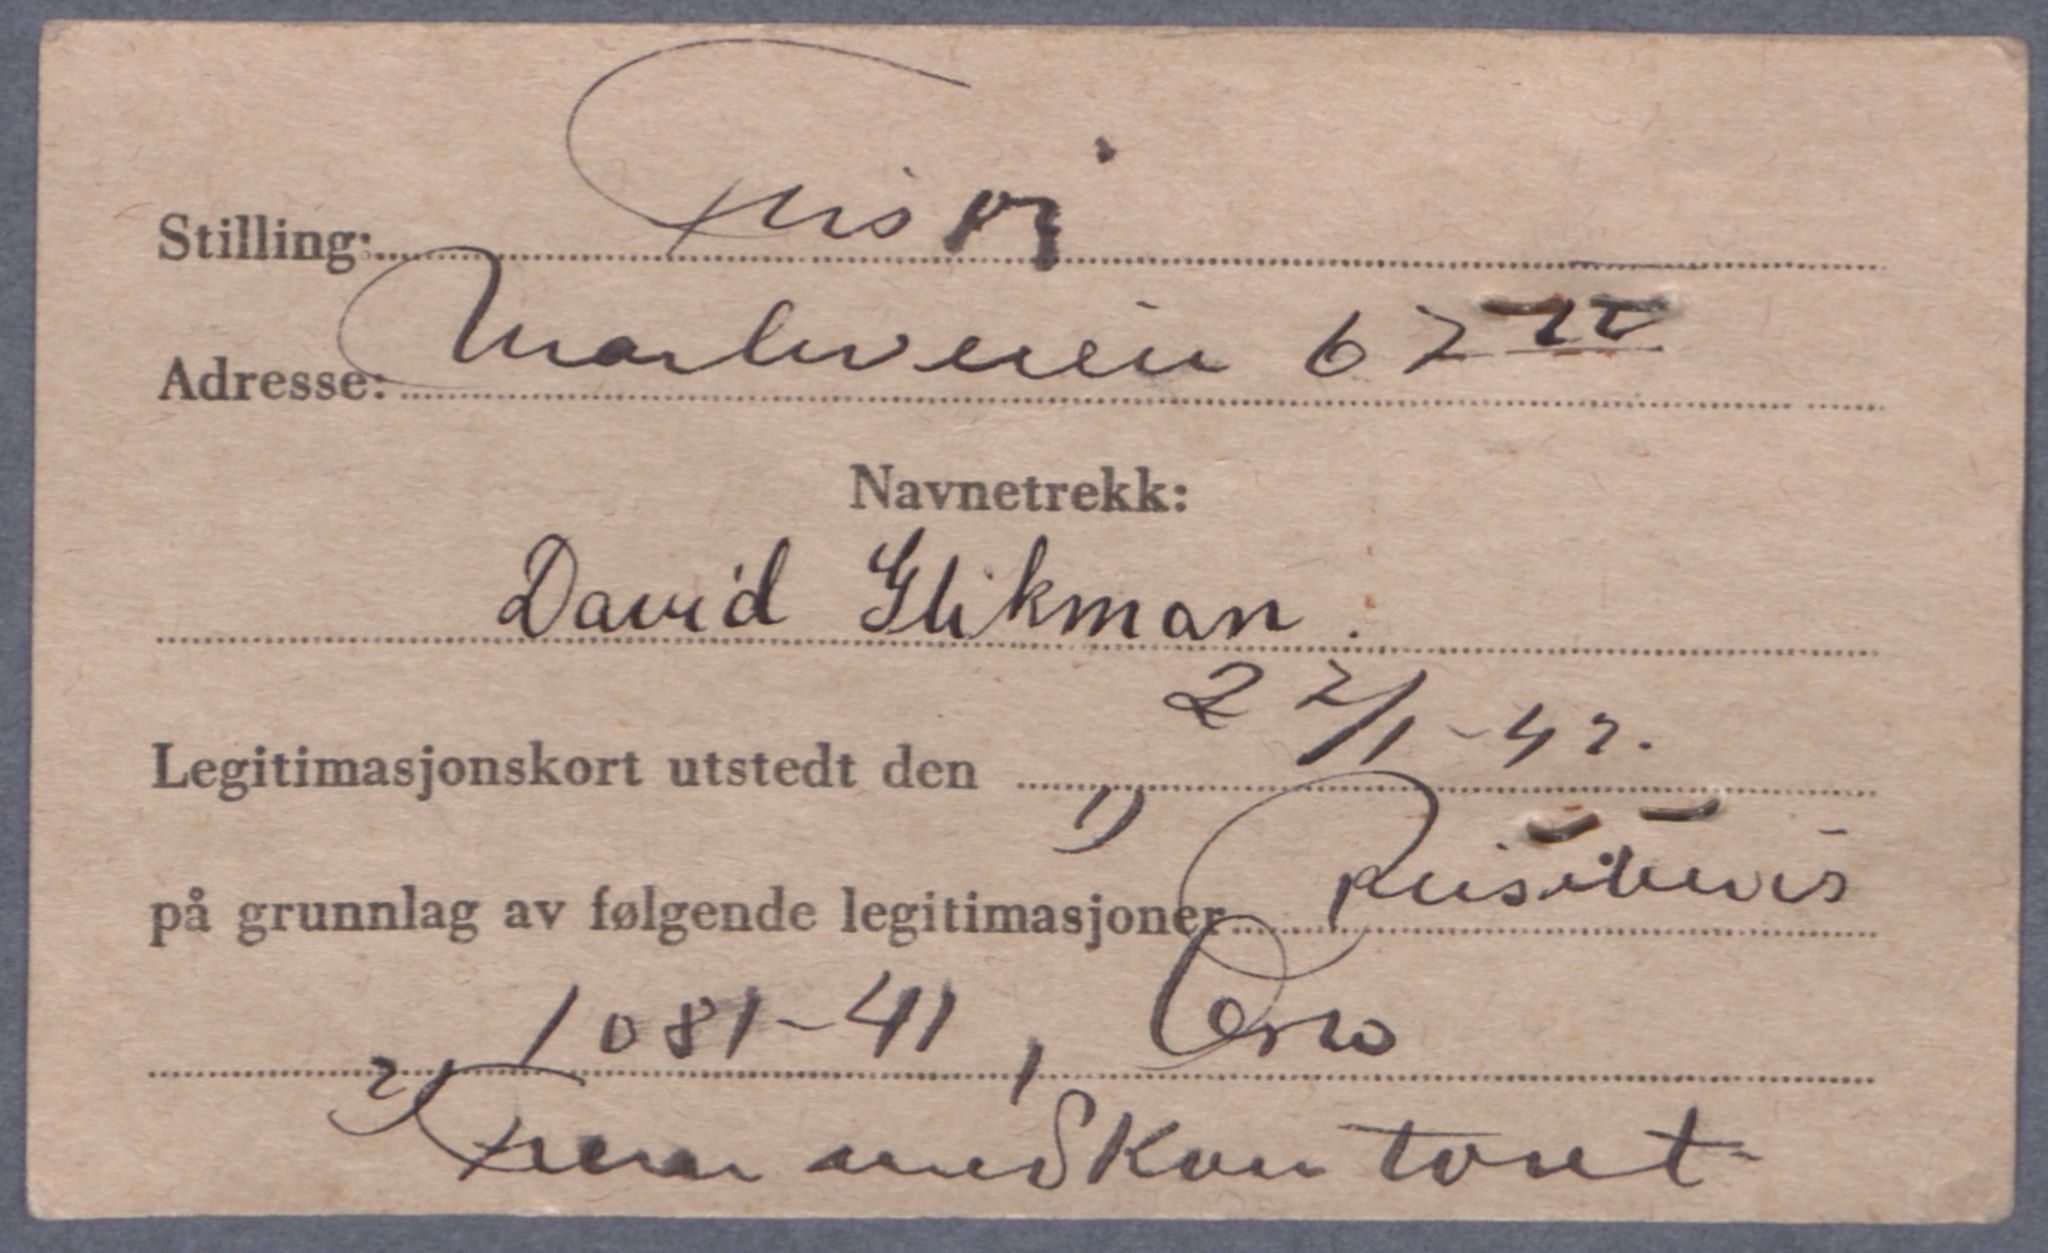 Stilling: Frisør
Adresse: Markveien 62 II
Navnetrekk:
David Glikman.
Legitimasjonskort utstedt den 22/1-42.
på grunnlag av følgende legitimasjoner 1) Reisebevis
1081-41, Oslo
2) Fremmedkontoret